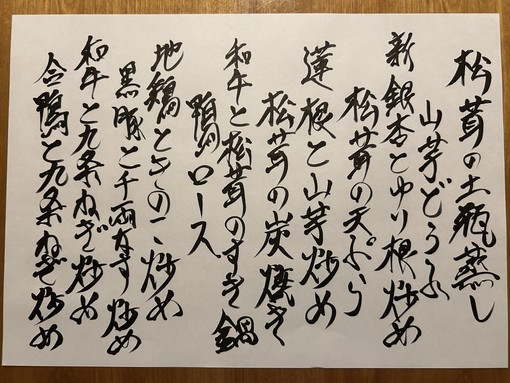 松茸の土瓶蒸し
山芋どうふ
新銀杏とゆり根炒め
松茸の天ぷら
蓮根と山芋炒め
松茸の炭焼き
和牛と松茸のすき鍋
鴨ロース
地鶏ときのこ炒め
黒豚と千両なす炒め
和牛と九条ねぎ炒め
合鴨と九条ねぎ炒め